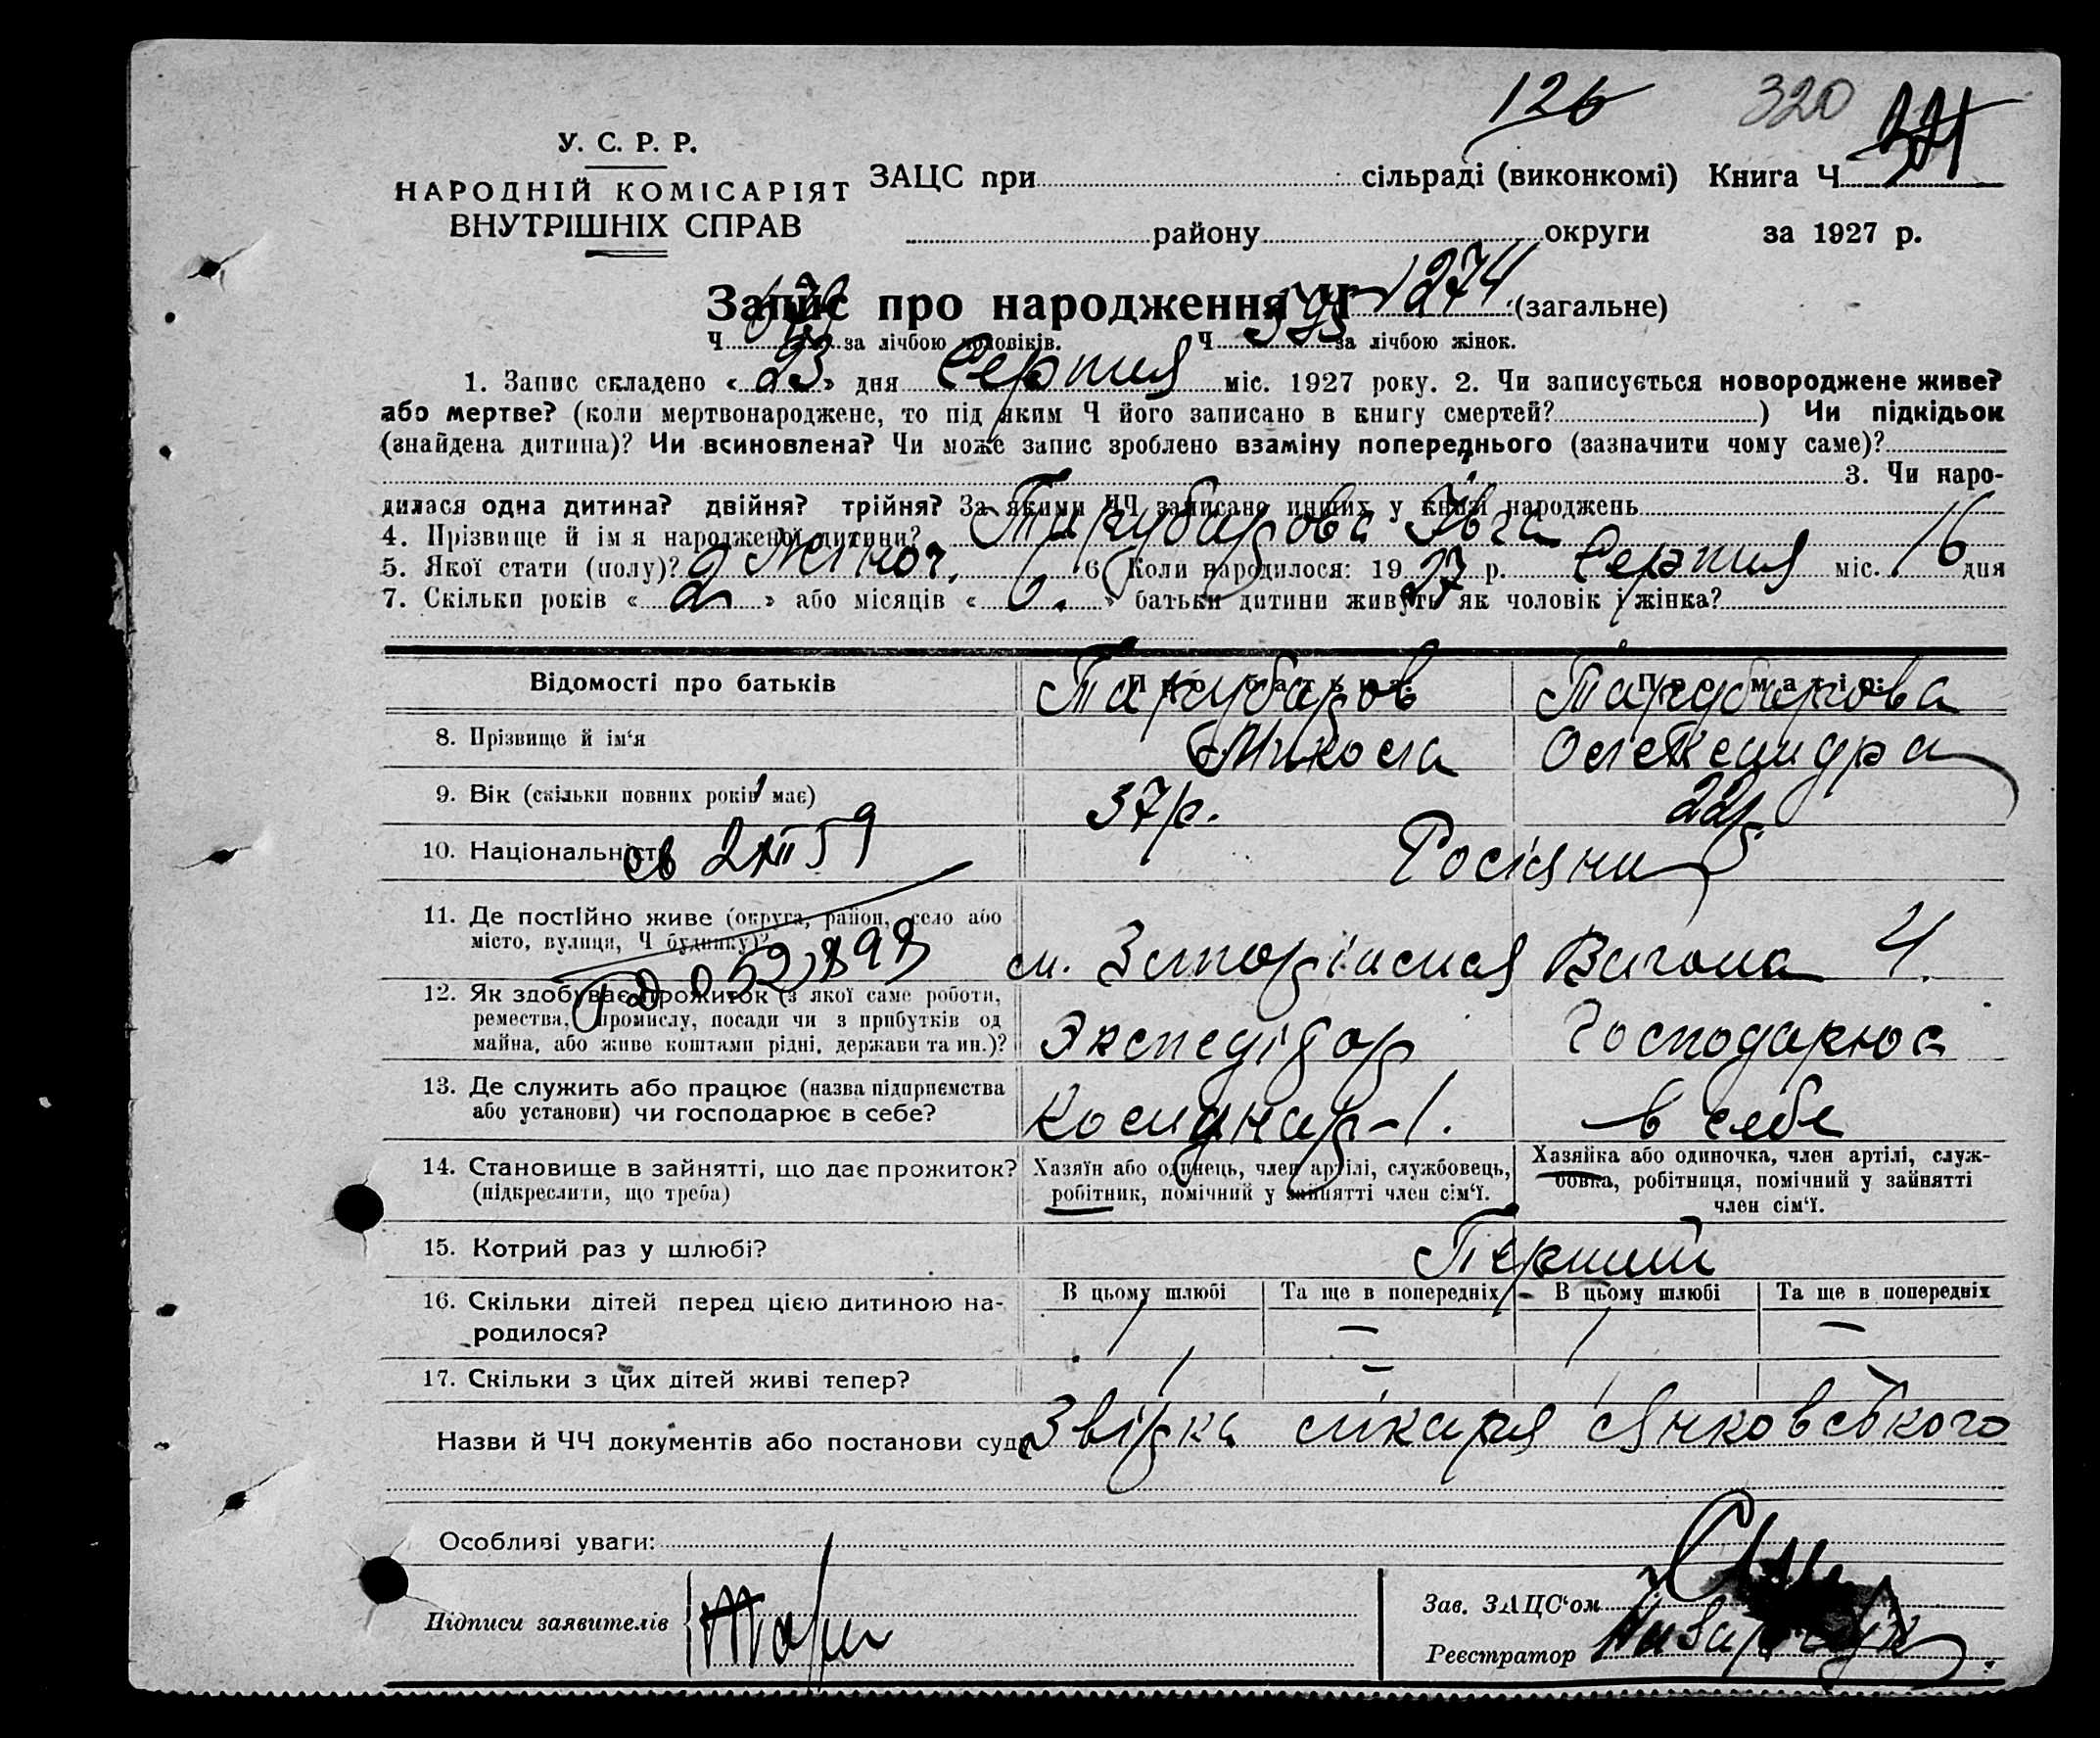 126 320
У. С. Р. Р.
НАРОДНІЙ КОМІСАРІЯТ
ВНУТРІШНІХ СПРАВ
ЗАЦС при сільраді (виконкомі) Книга Ч
району округи за 1927 р.
Запис про народження Ч 1274 (загальне)
Ч за лічбою чоловіків. Ч 595 за лічбою жінок.
1. Запис складено « 23 » дня Серпня міс. 1927 року. 2. Чи записується новороджене живе?
або мертве? (коли мертвонароджене, то під яким Ч його записано в книгу смертей? ) Чи підкідьок
(знайдена дитина)? Чи всиновлена? Чи може запис зроблено взаміну попереднього (зазначити чому саме)?
3. Чи наро-
дилася одна дитина? двійня? трійня? За якими ЧЧ записано инших у книзі народжень
4. Прізвище й імя народженої дитини?
5. Якої стати (полу)? Жіноч. 6. Коли народилося: 1927 р. Серпня міс. 16 дня
7. Скільки років « 2 » або місяців « » батьки дитини живуть як чоловік і жінка?
Відомості про батьків Про батька: Про матір:
8. Прізвище й ім'я Микола Олександра
9. Вік (скільки повних років має) 37р. 22р.
10. Національність Росіяни
св 2 XII 59
11. Де постійно живе (округа, район, село або
місто, вулиця, Ч будинку)? 4.
12. Як здобуває прожиток (з якої саме роботи,
ремества, промислу, посади чи з прибутків од
майна, або живе коштами рідні, держави та ин.)? Экспедітор Господарює
13. Де служить або працює (назва підприємства
або установи) чи господарює в себе? в себе
14. Становище в зайнятті, що дає прожиток?
(підкреслити, що треба)
Хазяїн або одинець, член артілі, службовець,
робітник, помічний у зайнятті член сім'ї.
Хазяйка або одиночка, член артілі, служ-
бовка, робітниця, помічний у зайнятті
член сім'ї.
15. Котрий раз у шлюбі? Перший
В цьому шлюбі Та ще в попередніх В цьому шлюбі Та ще в попередніх
16. Скільки дітей перед цією дитиною на-
родилося? 1 — 1 —
17. Скільки з цих дітей живі тепер? 1 — 1 —
Назви й ЧЧ документів або постанови суду лікаря Янковського
Особливі уваги:
Підписи заявителів
Зав. ЗАЦС'ом
Реєстратор